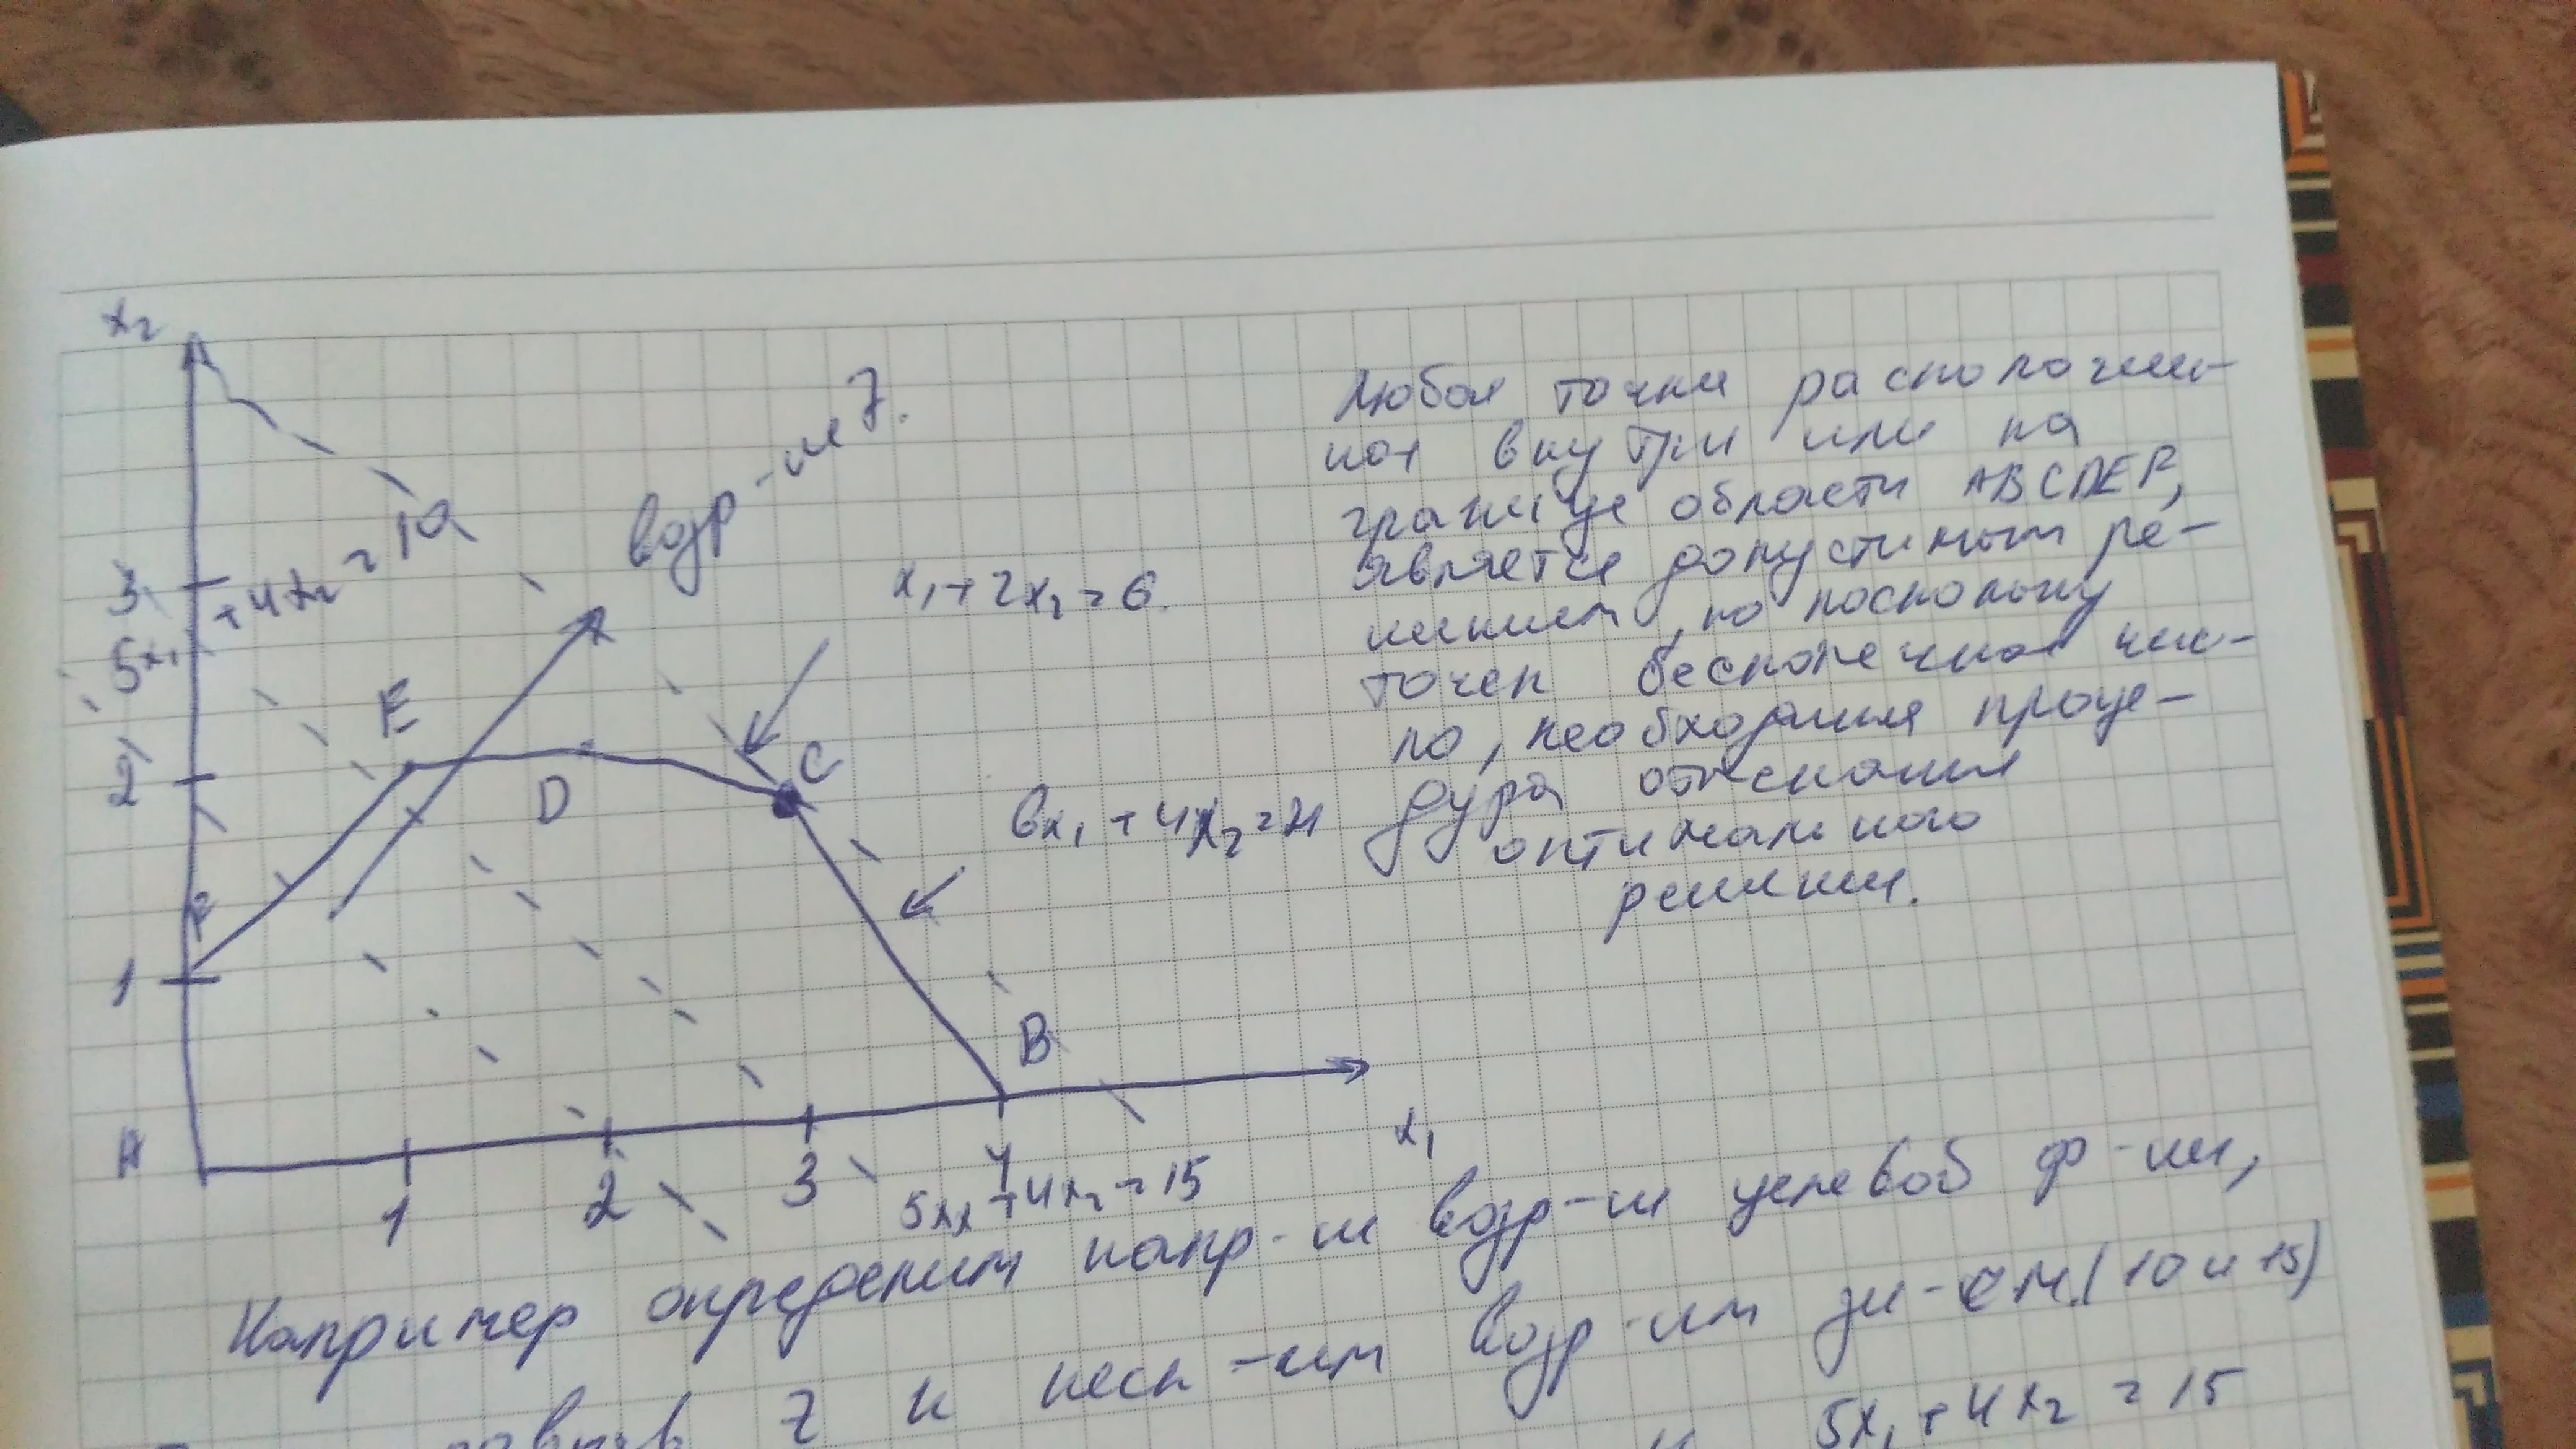 x₂
возр-ие Z.
5x₁ + 4x₂ = 10
3
x₁ + 2x₂ = 6.
E
2
D
C
6x₁ + 4x₂ = 24
F
1
B
A
1
2
3
4
x₁
5x₁ + 4x₂ = 15
Любая точка расположен-
ная внутри или на
границе области ABCDEF,
является допустимым ре-
шением, но поскольку
точек бесконечное чис-
ло, необходима проце-
дура отыскания
оптимального
решения.
Например определим напр-ия возр-ия целевой ф-ии,
Z к неск-им возр-им зн-ем. (10 и 15)
и 5x₁ + 4x₂ = 15